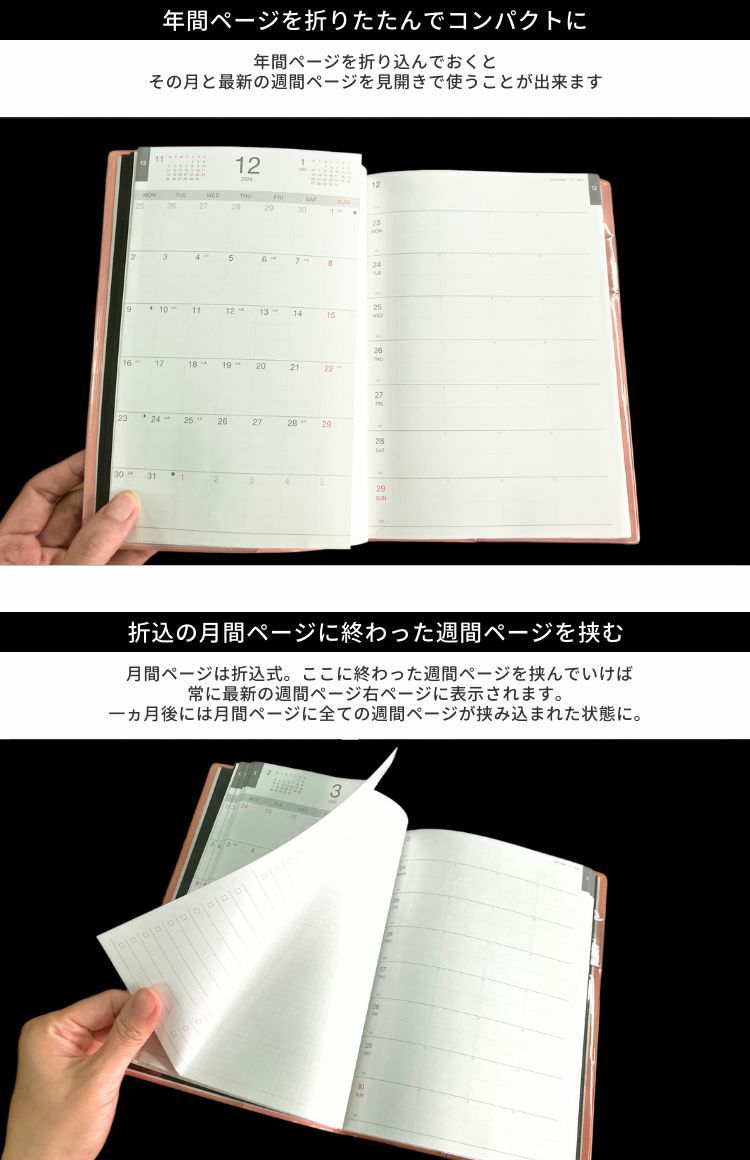 年間ページを折りたたんでコンパクトに
年間ページを折り込んでおくと
その月と最新の週間ページを見開きで使うことが出来ます
12
11
12
2024
1
MON TUE WED THU FRI SAT SUN
25 26 27 28 29 30 1
2 3 4 5 6 7 8
9 10 11 12 13 14 15
16 17 18 19 20 21 22
23 24 25 26 27 28 29
30 31 1 2 3 4 5
12
12
23
MON
24
TUE
25
WED
26
THU
27
FRI
28
SAT
29
SUN
折込の月間ページに終わった週間ページを挟む
月間ページは折込式。ここに終わった週間ページを挟んでいけば
常に最新の週間ページ右ページに表示されます。
一ヵ月後には月間ページに全ての週間ページが挟み込まれた状態に。
3
2
3
MON TUE WED
24 25 26
3 4
3
24
25
26
27
THU
28
29
SAT
30
SUN